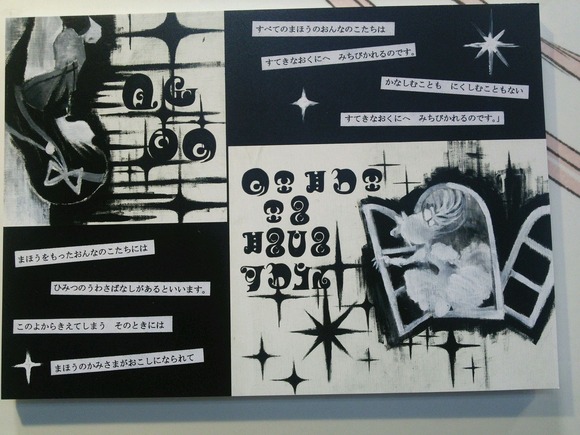 まほうをもったおんなのこたちには
ひみつのうわさばなしがあるといいます。
このよからきえてしまう　そのときには
まほうのかみさまがおこしになられて
すべてのまほうのおんなのこたちは
すてきなおくにへ　みちびかれるのです。
かなしむことも　にくしむこともない
すてきなおくにへ　みちびかれるのです。」